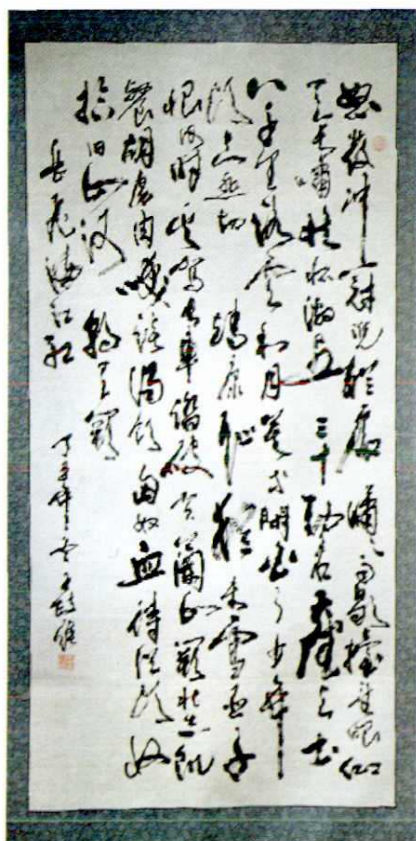 怒髮冲冠凭栏處瀟瀟雨歇擡望眼仰
天長嘯壮怀激烈三十功名尘与土
八千里路雲和月莫等閑白了少年
頭空悲切靖康恥猶未雪臣子
恨何時灭驾長車踏破贺蘭山闕壮志飢
餐胡虜肉笑談渴飲匈奴血待從頭收
拾旧山河朝天闕
岳飛滿江紅